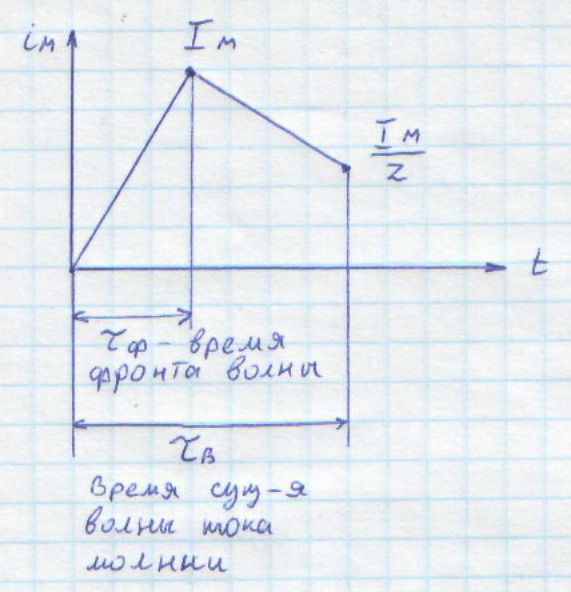 iм
Iм
Iм
2
t
τф - время
фронта волны
τв
Время сущ-я
волны тока
молнии